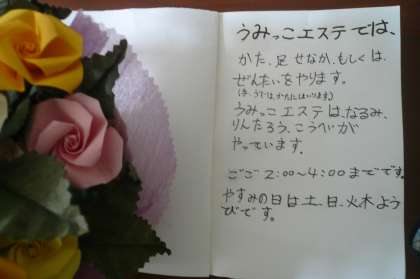 うみっこエステでは、
かた、足せなか、もしくは、
ぜんたいをやります。
(手、うでは、かたにはいります)
うみっこエステは、なるみ、
りんたろう、こうへいが
やっています。
ごご 2:00〜4:00までです。
やすみの日は土、日、火木よう
びです。